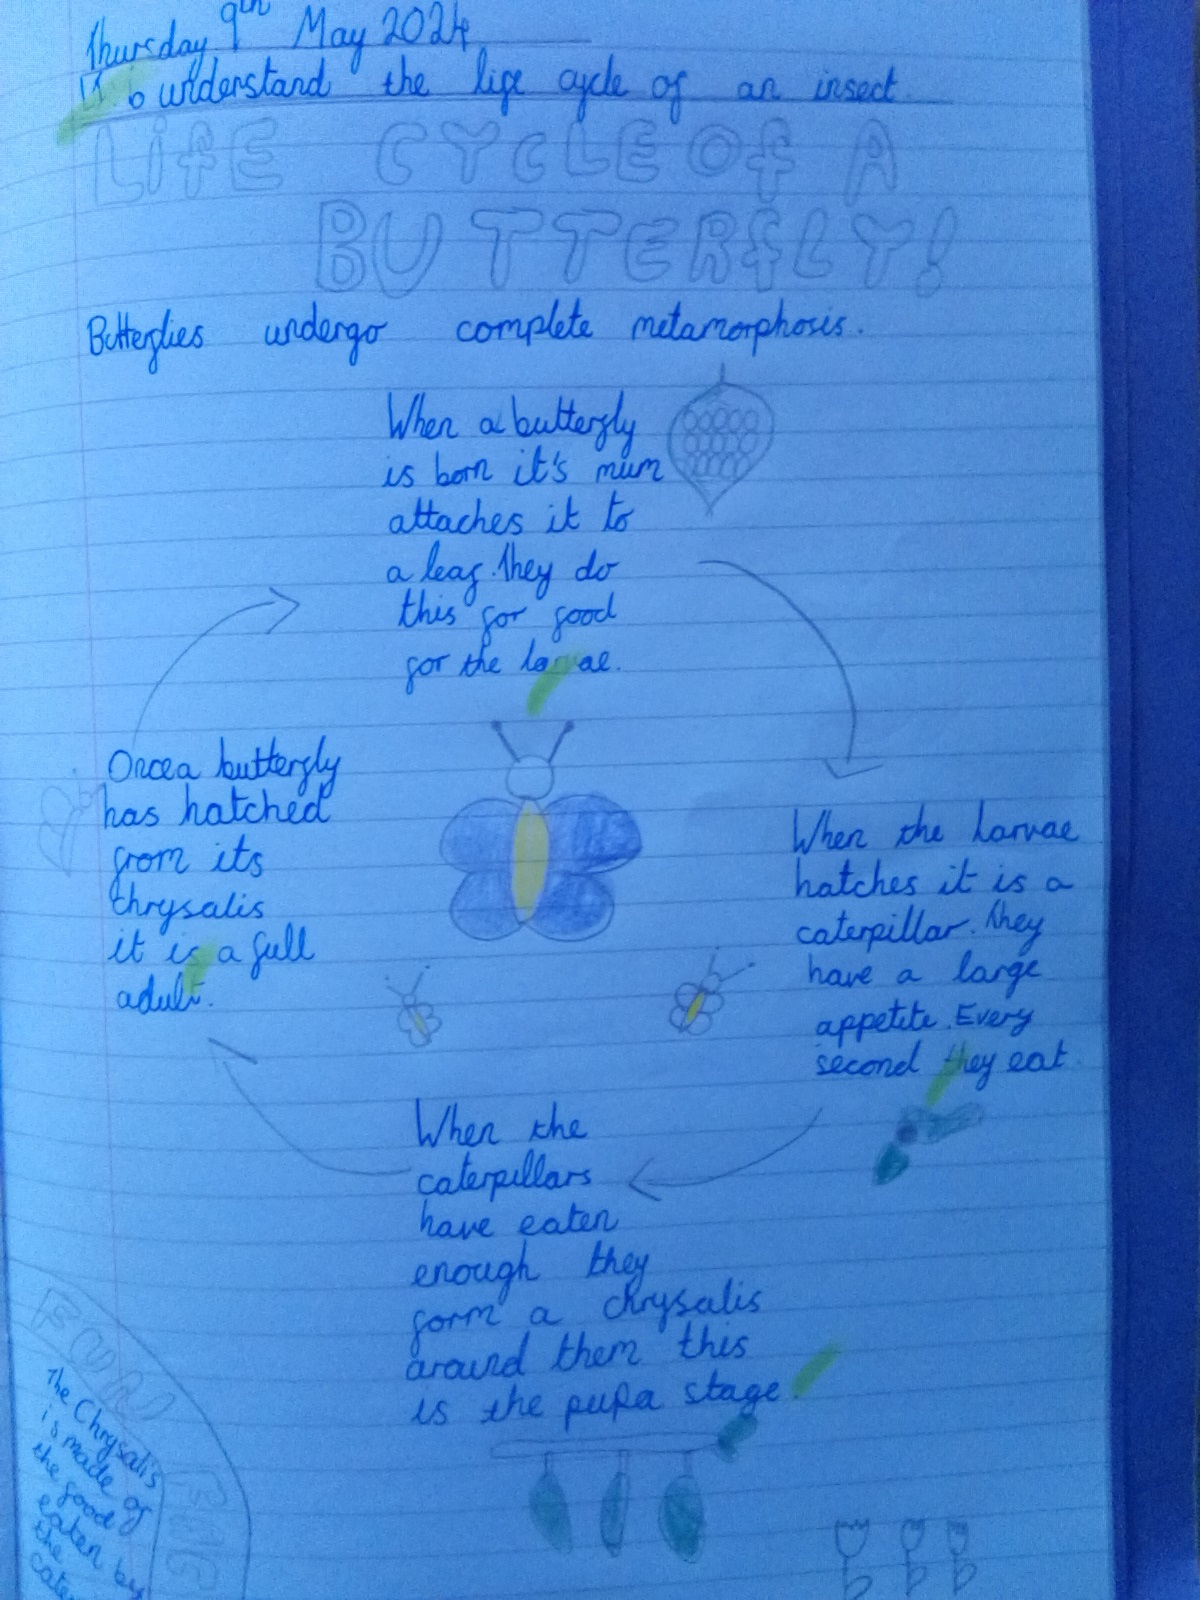 Thursday 9th May 2024
to understand the life cycle of an insect.
LIFE CYCLE OF A
BUTTERFLY!
Butterflies undergo complete metamorphosis.
When a butterfly
is born it's mum
attaches it to
a leaf. They do
this for food
for the larvae.
When the larvae
hatches it is a
caterpillar. They
have a large
appetite. Every
second they eat.
When the
caterpillars
have eaten
enough they
form a chrysalis
around them this
is the pupa stage.
Once a butterfly
has hatched
from its
chrysalis
it is a full
adult.
FUN
FAC
The Chrysalis
is made of
the food
eaten by
the